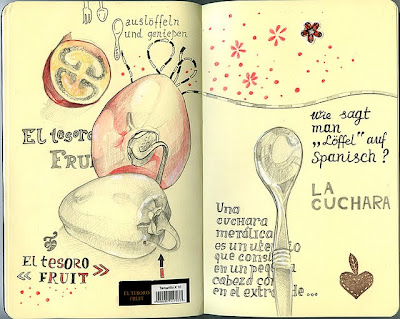 auslöffeln
und genießen
El tesoro
Fruit
El tesoro
« FRUIT »
EL TESORO
FRUIT
wie sagt
man
„Löffel" auf
Spanisch?
LA
CUCHARA
Una
cuchara
metálica
es un
que
en un
cabeza
en el